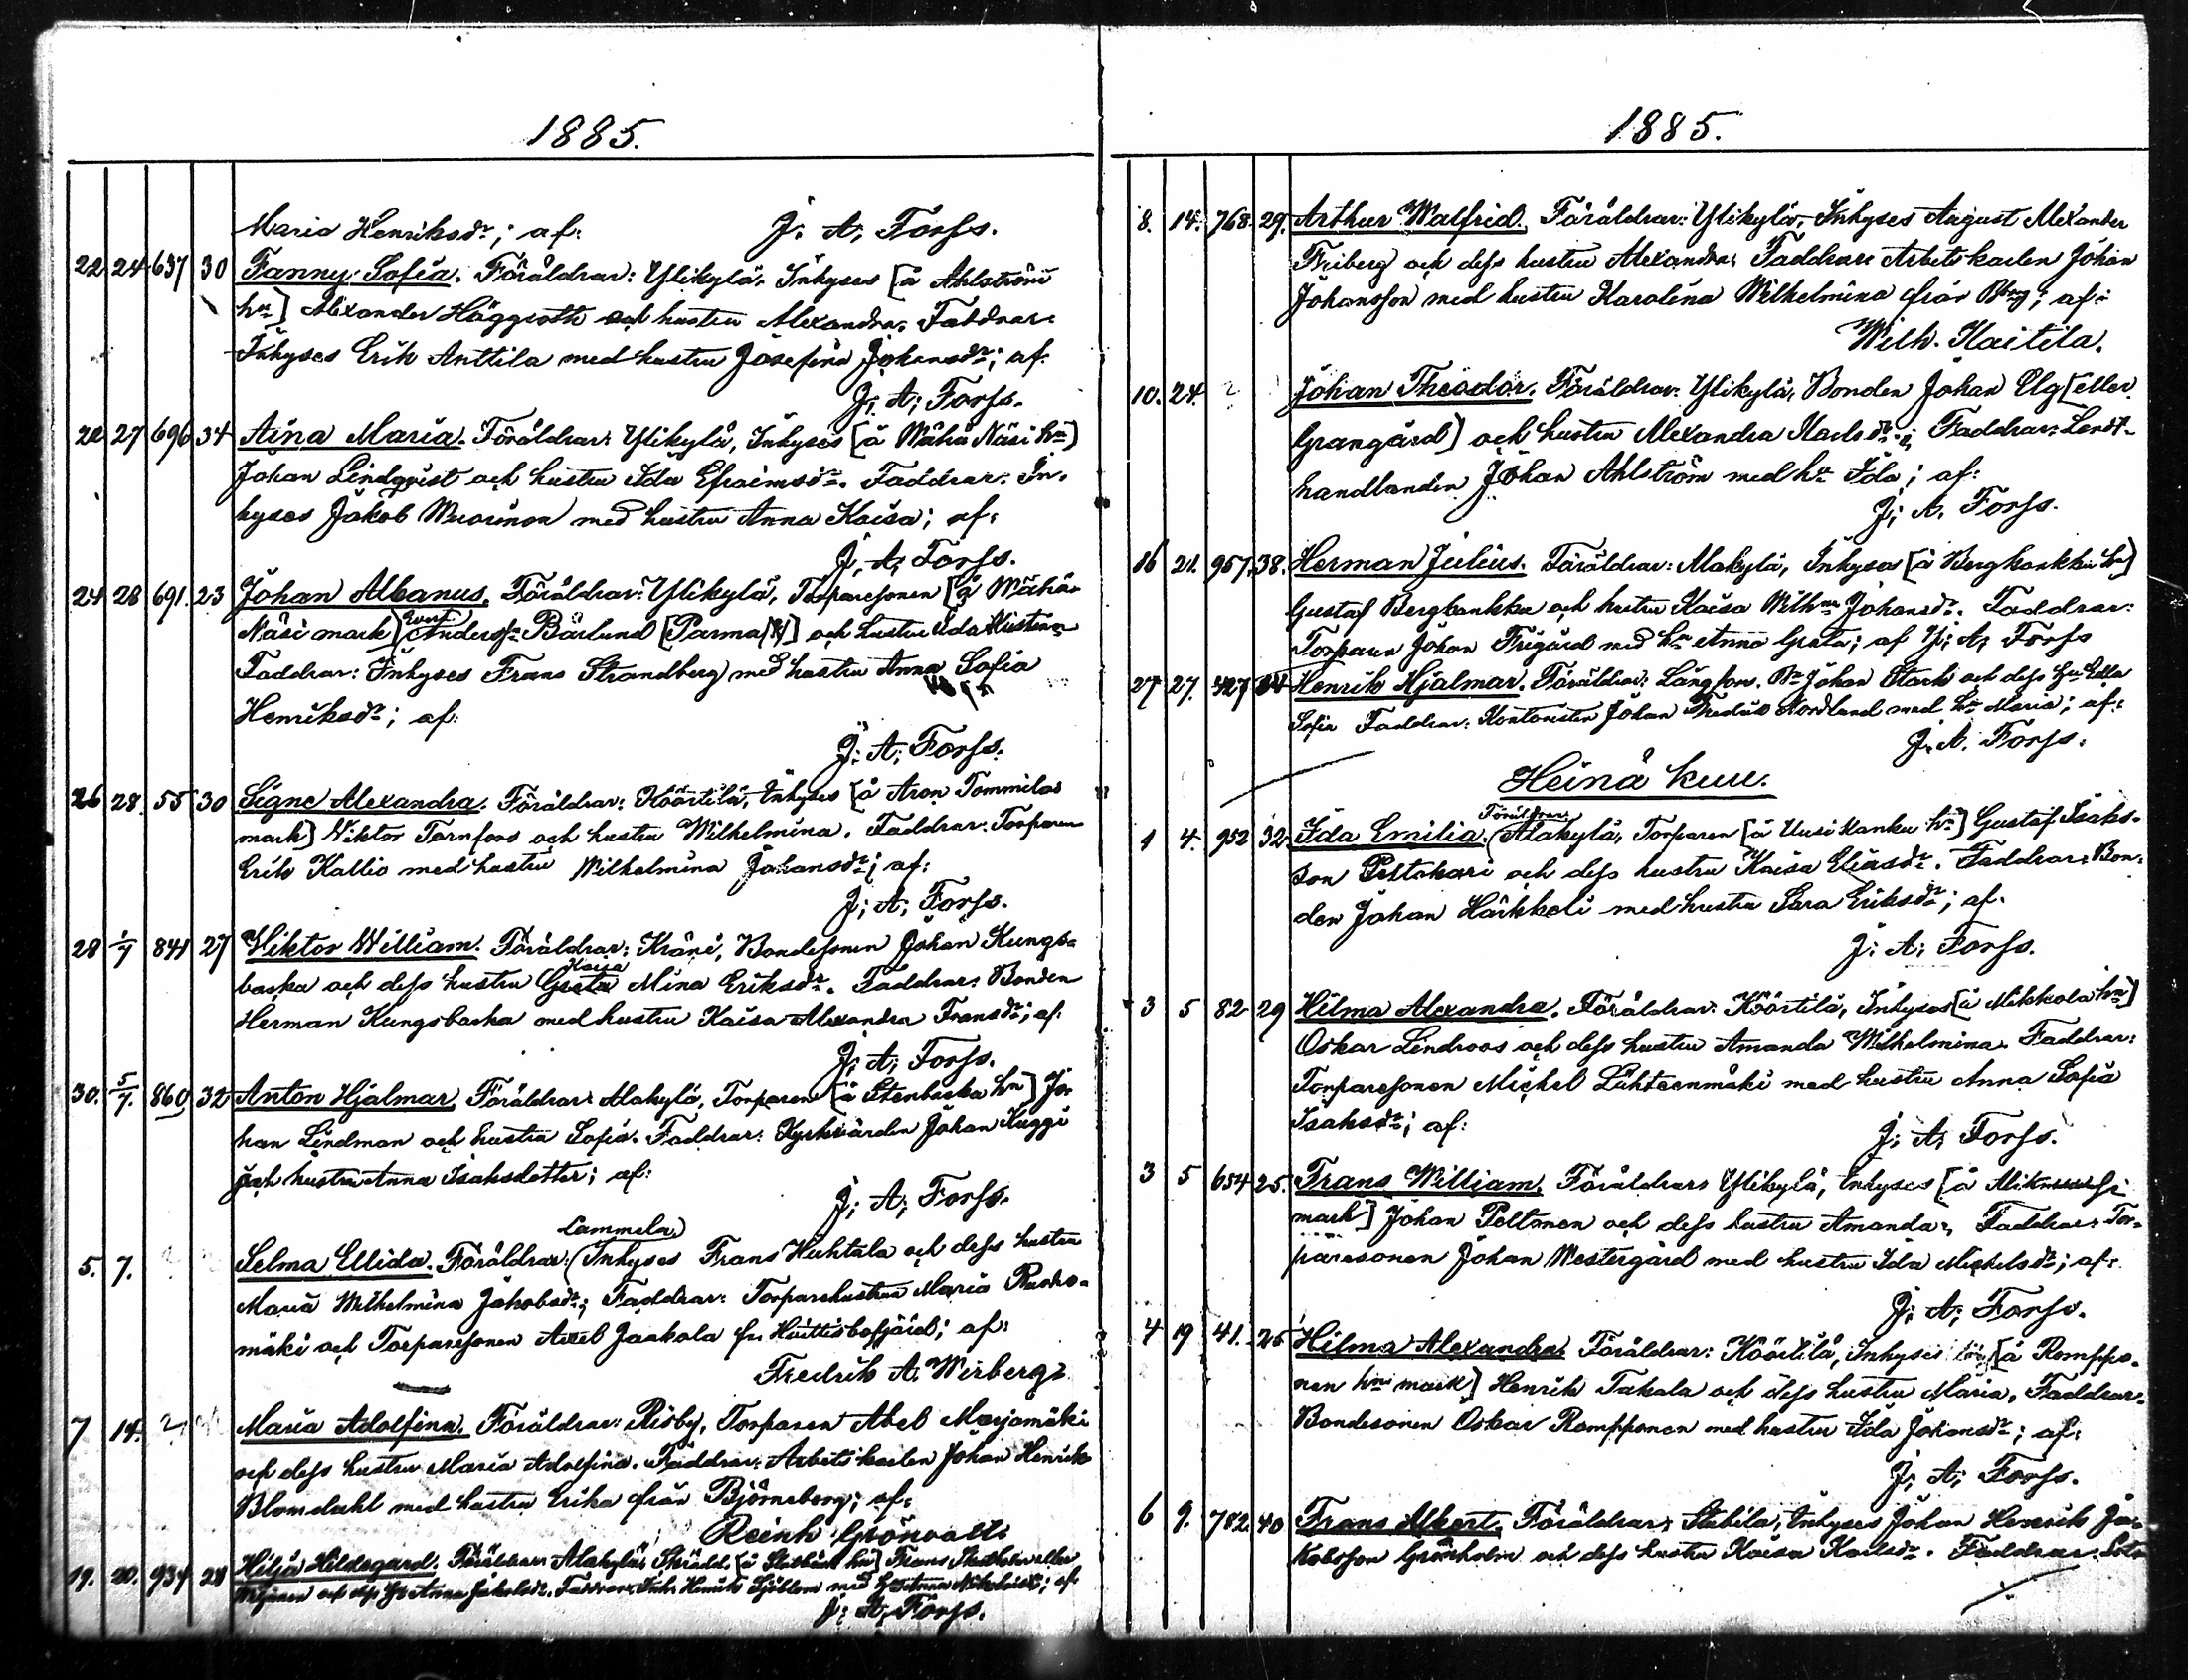 1885.
Maria Henriksdr; af: J: A: Forss.
22 24 637 30 Fanny Sofia. Föräldrar: Ylikylä, Inhyses [å Ahlström
hn] Alexander Häggroth och hustru Alexandra. Faddrar:
Inhyses Erik Anttila med hustru Josefina Johansdr; af:
J: A: Forss.
22 27 696 34 Aina Maria. Föräldrar: Ylikylä, Inhyses [å Wähä Näsi hn]
Johan Lindqvist och hustru Ida Efraimsdr. Faddrar: In-
hyses Jakob Wuorinen med hustru Anna Kaisa; af:
J: A: Forss.
24 28 691. 23 Johan Albanus. Föräldrar: Ylikylä, Torparesonen [å Wähä
Näsi mark] Andersson Bärlund [Parma] och hustru Ida
Faddrar: Inhyses Frans Strandberg med hustru Anna Sofia
Henriksdr; af:
J: A: Forss.
26 28. 55 30 Signe Alexandra. Föräldrar: Köörtilä, Inhyses [å Aron Tommilas
mark] Viktor Tornfors och hustru Wilhelmina. Faddrar: Torparen
Erik Kallio med hustru Wilhelmina Johansdr; af:
J: A: Forss.
28 1/7 841 27 Viktor William. Föräldrar: Kräni, Bondesonen Johan Kungs-
backa och dess hustru Greta Kaisa Mina Eriksdr. Faddrar: Bonden
Herman Kungsbacka med hustru Kaisa Alexandra Fransdr; af:
J: A: Forss.
30. 5/7. 860 32 Anton Hjalmar. Föräldrar: Alakylä, Torparen [å Stenbacka hn] Jo-
han Lindman och hustru Sofia. Faddrar: Kyrkvärden Johan Kuggi
och hustru Anna Isaksdotter; af:
J: A: Forss.
Lammela,
5. 7. Selma Ellida. Föräldrar: (Inhyses Frans Huhtala och dess hustru
Maria Wilhelmina Jakobsdr; Faddrar: Torparehustrun Maria
mäki och Torparesonen Axel Jaakola fr. Huittisbofjärd; af:
Fredrik A. Wirberg.
7 14. Maria Adolfina. Föräldrar: Risby, Torparen Abel Marjamäki
och dess hustru Maria Adolfina. Faddrar: Arbetskarlen Johan Henrik
Blomdahl med hustru Erika från Björneborg; af:
Reinh. Grönvall.
19. 20. 934 28 Hilja Hildegard. Föräldrar: Alakylä, Frans
och dess Anna Jakobsdr. Faddrar: Inh. Henrik Sjöblom med Anna; af:
J: A: Forss.
1885.
8. 14. 768. 29. Arthur Walfrid. Föräldrar: Ylikylä, Inhyses August Alexander
Friberg och dess hustru Alexandra. Faddrar: Arbetskarlen Johan
Johansson med hustru Karolina Wilhelmina från Bbrg; af:
Wilh. Kaitila.
10. 24. Johan Theodor. Föräldrar: Ylikylä, Bonden Johan Elg [eller
Grangård] och hustru Alexandra Karlsdr; Faddrar: Landt-
handlanden Johan Ahlström med hu Ida; af:
J: A: Forss.
16 21. 957. 38. Herman Julius. Föräldrar: Alakylä, Inhyses [å Bergbankka hn]
Gustaf Bergbankka och hustru Kaisa Wilhna Johansdr. Faddrar:
Torparen Johan Frigård med hu Anna Greta; af J: A: Forss
27 27. 427 Henrik Hjalmar. Föräldrar: Långfors. Bn Johan Stark och dess Hu
Sofia Faddrar: Kontoristen Johan Fredrik Nordlund med hu Maria; af:
J. A. Forss.
Heinä kuu.
Föräldrar:
1 4. 952 32 Ida Emilia. (Alakylä, Torparen [å Uusi Kanku hn] Gustaf Isaks-
son Peltokari och dess hustru Kaisa Eliasdr. Faddrar: Bon-
den Johan Härkkeli med hustru Sara Eriksdr; af:
J: A: Forss.
3 5 82 29 Hilma Alexandra. Föräldrar: Köörtilä, Inhyses [å Mikkola hn]
Oskar Lindroos och dess hustru Amanda Wilhelmina. Faddrar:
Torparesonen Michel Lähteenmäki med hustru Anna Sofia
Isaksdr; af:
J: A: Forss.
3 5 654 25. Frans William. Föräldrar: Ylikylä, Inhyses [å
mark] Johan Peltonen och dess hustru Amanda. Faddrar: Tor-
paresonen Johan Westergård med hustru Ida Michelsdr; af:
J: A: Forss.
4 19 41. 25 Hilma Alexandra. Föräldrar: Köörtilä, Inhyses [å Romppa-
nen hns mark] Henrik Takala och dess hustru Maria, Faddrar:
Bondesonen Oskar Romppanen med hustru Ida Johansdr; af:
J: A: Forss.
6 9. 782 40 Frans Albert. Föräldrar: Inhyses Johan Henrik Ja-
kobsson Grönholm och dess hustru Kaisa Karlsdr. Faddrar: